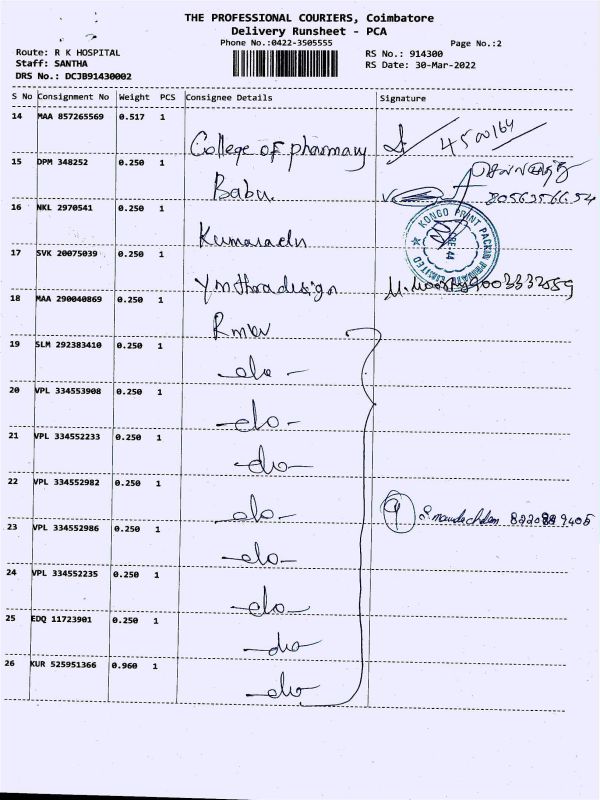 THE PROFESSIONAL COURIERS, Coimbatore
Delivery Runsheet - PCA
Phone No.:0422-3505555
Page No.:2
Route: R K HOSPITAL
RS No.: 914300
Staff: SANTHA
RS Date: 30-Mar-2022
DRS No.: DCJB91430002
S No Consignment No Weight PCS Consignee Details Signature
14 MAA 857265569 0.517 1 College of pharmacy 4500164
15 DPM 348252 0.250 1 Babu
16 NKL 2970541 0.250 1 Kumaravelu
KONGO PRINT PACKER PRIVATE LIMITED
CBE-44
17 SVK 20075039 0.250 1 Ymthra design 9003332059
18 MAA 290040869 0.250 1
19 SLM 292383410 0.250 1 -do-
20 VPL 334553908 0.250 1 -do-
21 VPL 334552233 0.250 1 -do-
22 VPL 334552982 0.250 1 -do-
23 VPL 334552986 0.250 1 -do-
24 VPL 334552235 0.250 1 -do-
25 EDQ 11723901 0.250 1 -do-
26 KUR 525951366 0.960 1 -do-